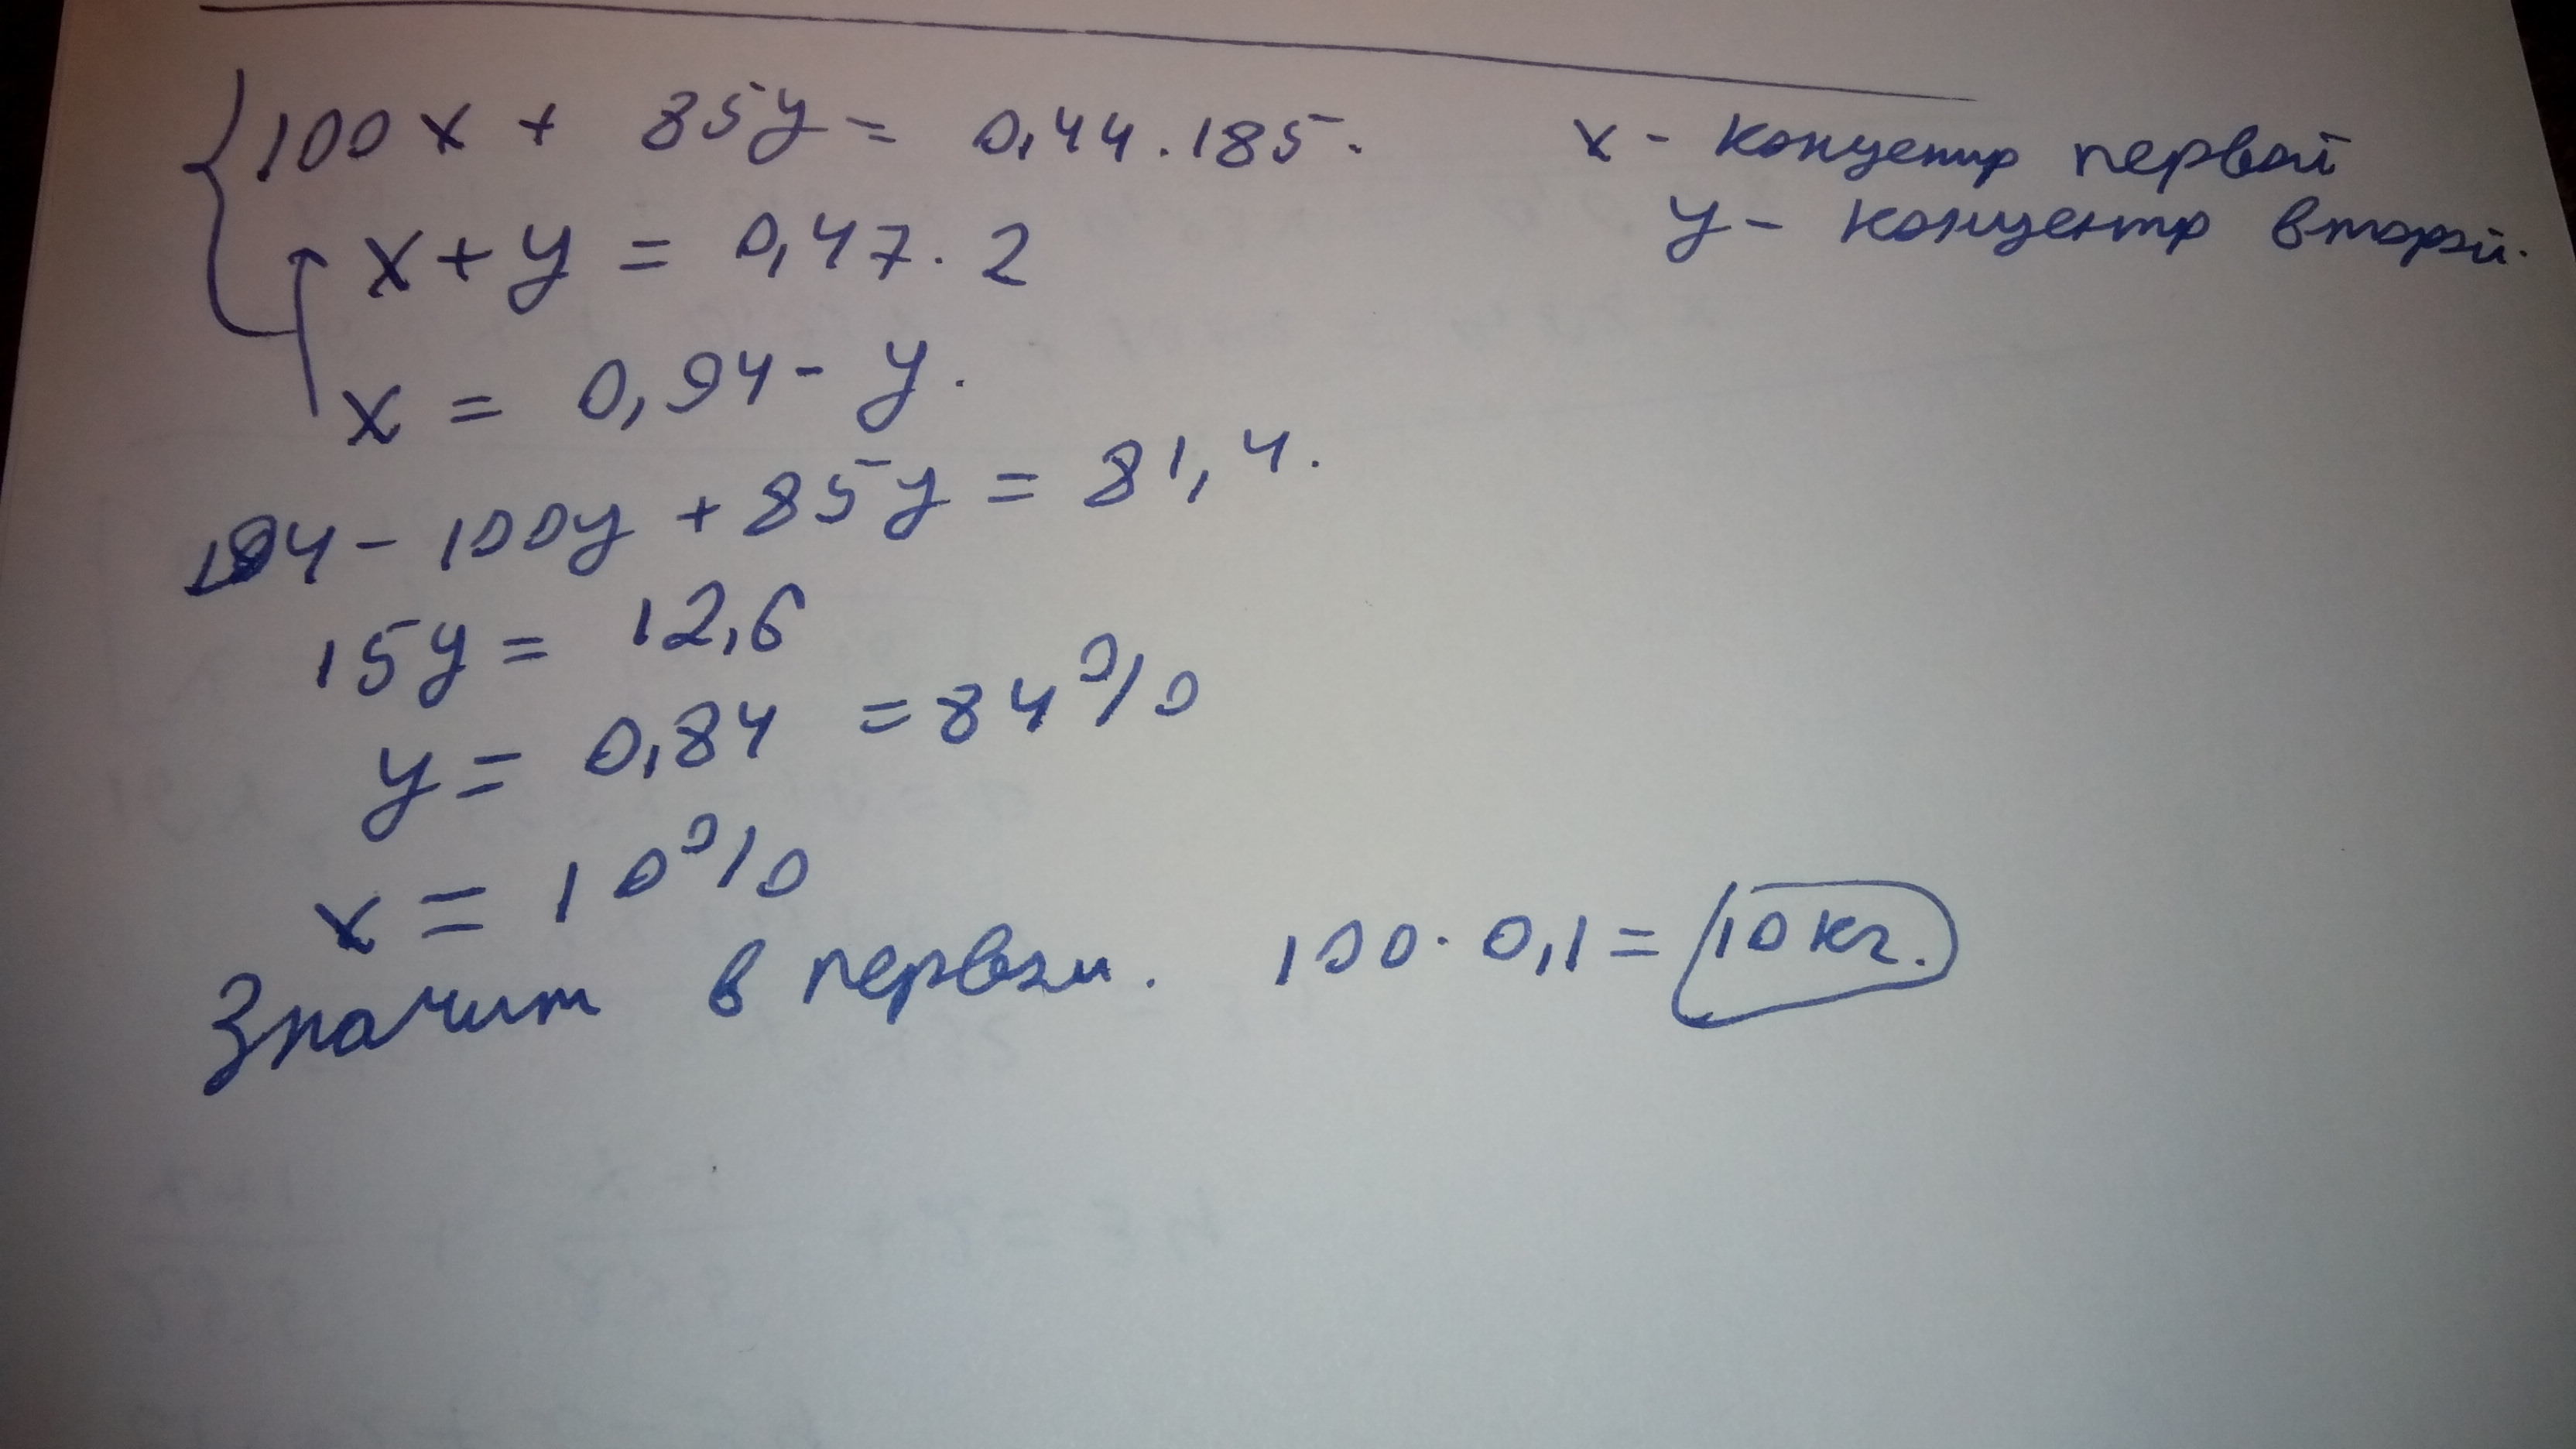 100x + 85y = 0,44 · 185.
x - концентр первой
y - концентр второй.
x + y = 0,47 · 2
x = 0,94 - y.
94 - 100y + 85y = 81,4.
15y = 12,6
y = 0,84 = 84%
x = 10%
Значит в первом. 100 · 0,1 = 10 кг.